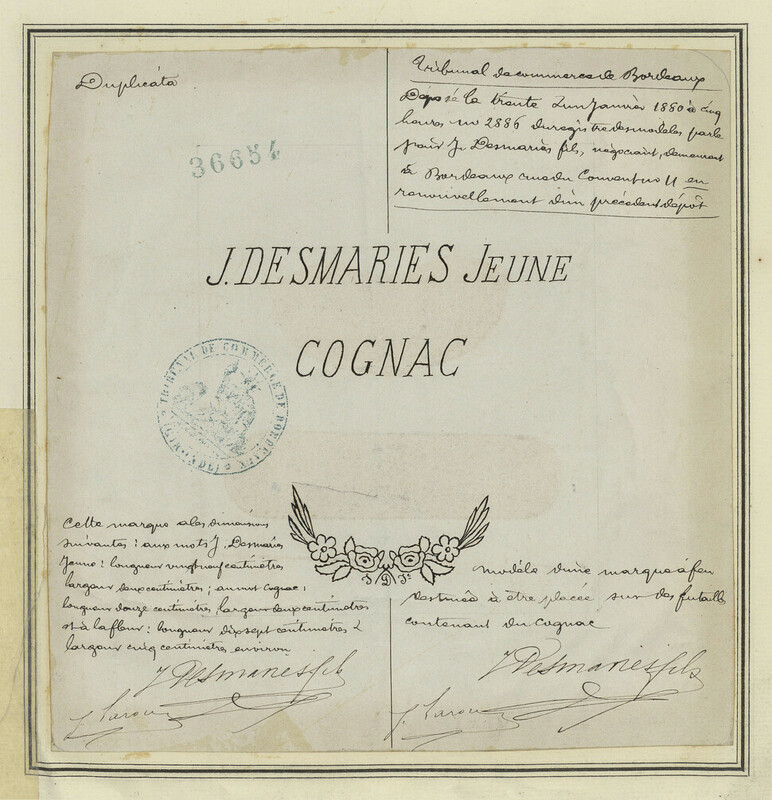 Duplicata
Tribunal de commerce de Bordeaux
Déposé le trente un Janvier 1880 à cinq
heures no 2886 du registre des modèles par le
J. Desmariès fils, négociant, demeurant
à Bordeaux rue du Couvent no 11 en
renouvellement d'un précédent dépôt
36654
J. DESMARIES JEUNE
COGNAC
TRIBUNAL DE COMMERCE DE BORDEAUX
Cette marque a les dimensions
suivantes : aux mots J. Desmariès
Jeune : longueur vingt neuf centimètres
largeur deux centimètres ; au mot Cognac :
longueur douze centimètres, largeur deux centimètres
et à la fleur : longueur dix sept centimètres &
largeur cinq centimètres environ
J. D. Je
modèle d'une marque à feu
destinée à être placée sur des futailles
contenant du cognac
J Desmariès fils
J Desmariès fils